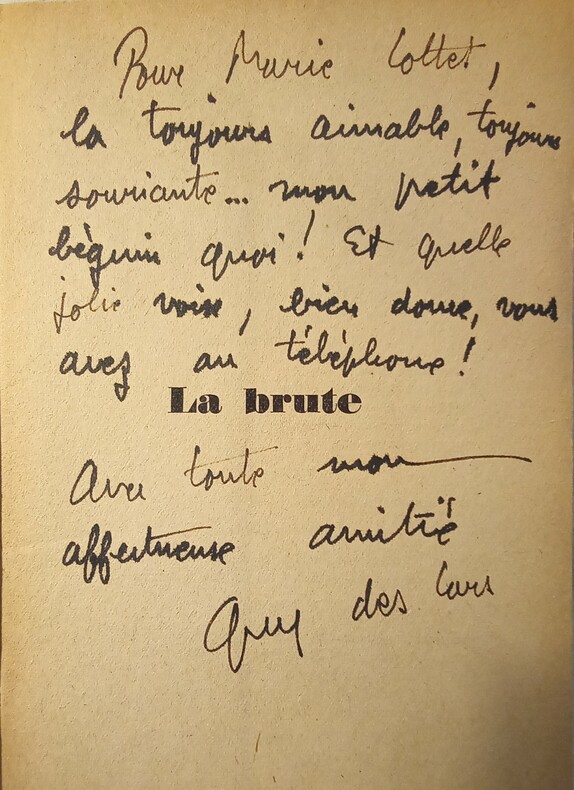 Pour Marie Cottet,
la toujours aimable, toujours
souriante... mon petit
béguin quoi ! Et quelle
jolie voix, bien douce, vous
avez au téléphone !
La brute
Avec toute mon
affectueuse amitié
Guy des Cars